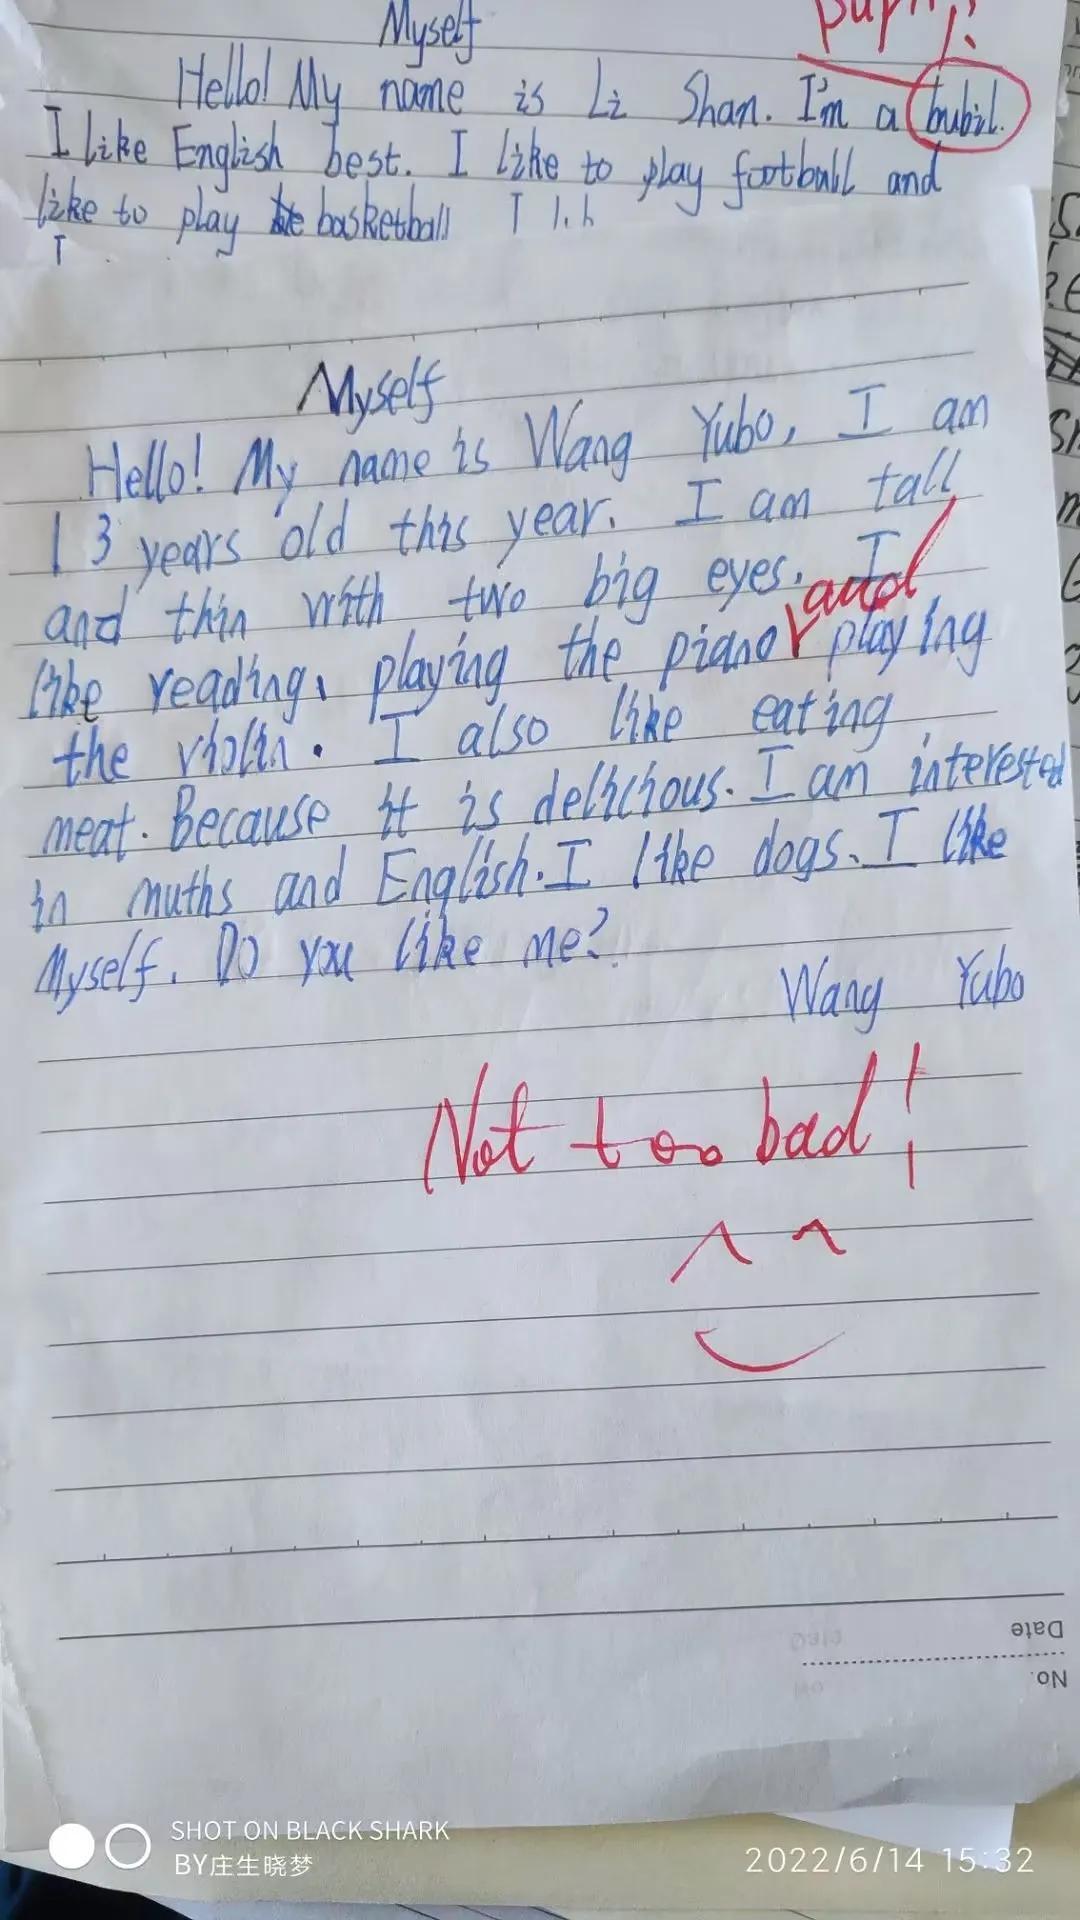 Myself
Hello! My name is Li Shan. I'm a bubil.
I like English best. I like to play football and
like to play basketball I
I
Myself
Hello! My name is Wang Yubo, I am
13 years old this year. I am tall
and thin with two big eyes. I
and
like reading, playing the piano playing
the violin. I also like eating
meat. Because it is delicious. I am interested
in muths and English. I like dogs. I like
Myself. Do you like me?
Wang Yubo
Not too bad!
Date
No.
SHOT ON BLACK SHARK
BY庄生晓梦
2022/6/14 15:32